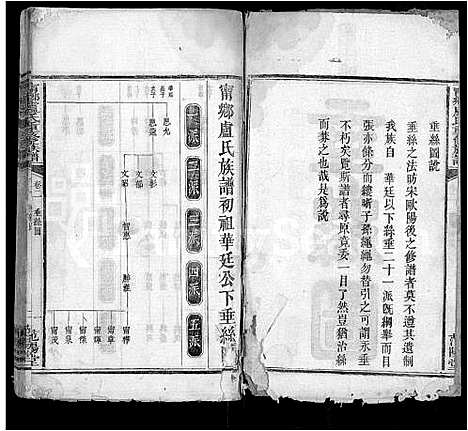 垂絲圖說
垂絲之法昉宋歐陽後之修譜者莫不遵其遺制
我族自　華廷以下絲垂二十一派既綱舉而目
張亦條分而縷晰子孫繩繩勿替引之可期永垂
不朽矣覽斯譜者尋原竟委一目了然豈猶治絲
而棼之哉是爲說
甯鄉盧氏族譜初祖華廷公下垂絲
一派
二派
三派
四派
五派
思允
思聰
文彬
文郁
文
智
甯
甯
甯
甯
甯茂
卷二
垂絲圖
范陽堂